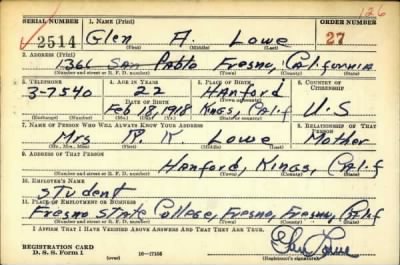 126
SERIAL NUMBER 1. NAME (Print) ORDER NUMBER
2514 Glen A. Lowe 27
(First) (Middle) (Last)
2. ADDRESS (Print)
1366 San Pablo Fresno, California
(Number and street or R. F. D. number) (Town) (County) (State)
3. TELEPHONE 4. AGE IN YEARS 5. PLACE OF BIRTH 6. COUNTRY OF CITIZENSHIP
3-7540 22 Hanford
DATE OF BIRTH (Town or county)
Feb, 18, 1918 Kings, Calif U.S
(Exchange) (Number) (Mo.) (Day) (Yr.) (State or country)
7. NAME OF PERSON WHO WILL ALWAYS KNOW YOUR ADDRESS 8. RELATIONSHIP OF THAT PERSON
Mrs R. K. Lowe Mother
(Mr., Mrs., Miss) (First) (Middle) (Last)
9. ADDRESS OF THAT PERSON
Hanford, Kings, Calif
(Number and street or R. F. D. number) (Town) (County) (State)
10. EMPLOYER'S NAME
Student
11. PLACE OF EMPLOYMENT OR BUSINESS
Fresno State College, Fresno, Fresno, Calif
(Number and street or R. F. D. number) (Town) (County) (State)
I AFFIRM THAT I HAVE VERIFIED ABOVE ANSWERS AND THAT THEY ARE TRUE.
REGISTRATION CARD Glen Lowe
D. S. S. Form 1 (over) (Registrant's signature)